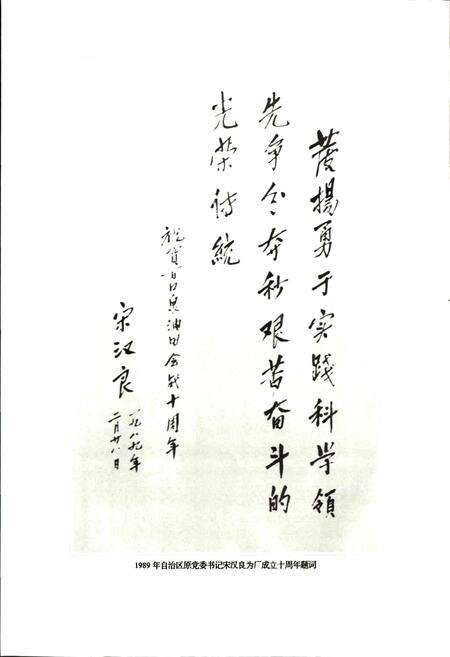 发扬勇于实践科学领
先争分夺秒艰苦奋斗的
光荣传统
祝贺百口泉油田会战十周年
宋汉良
一九八九年
二月廿八日
1989 年自治区原党委书记宋汉良为厂成立十周年题词